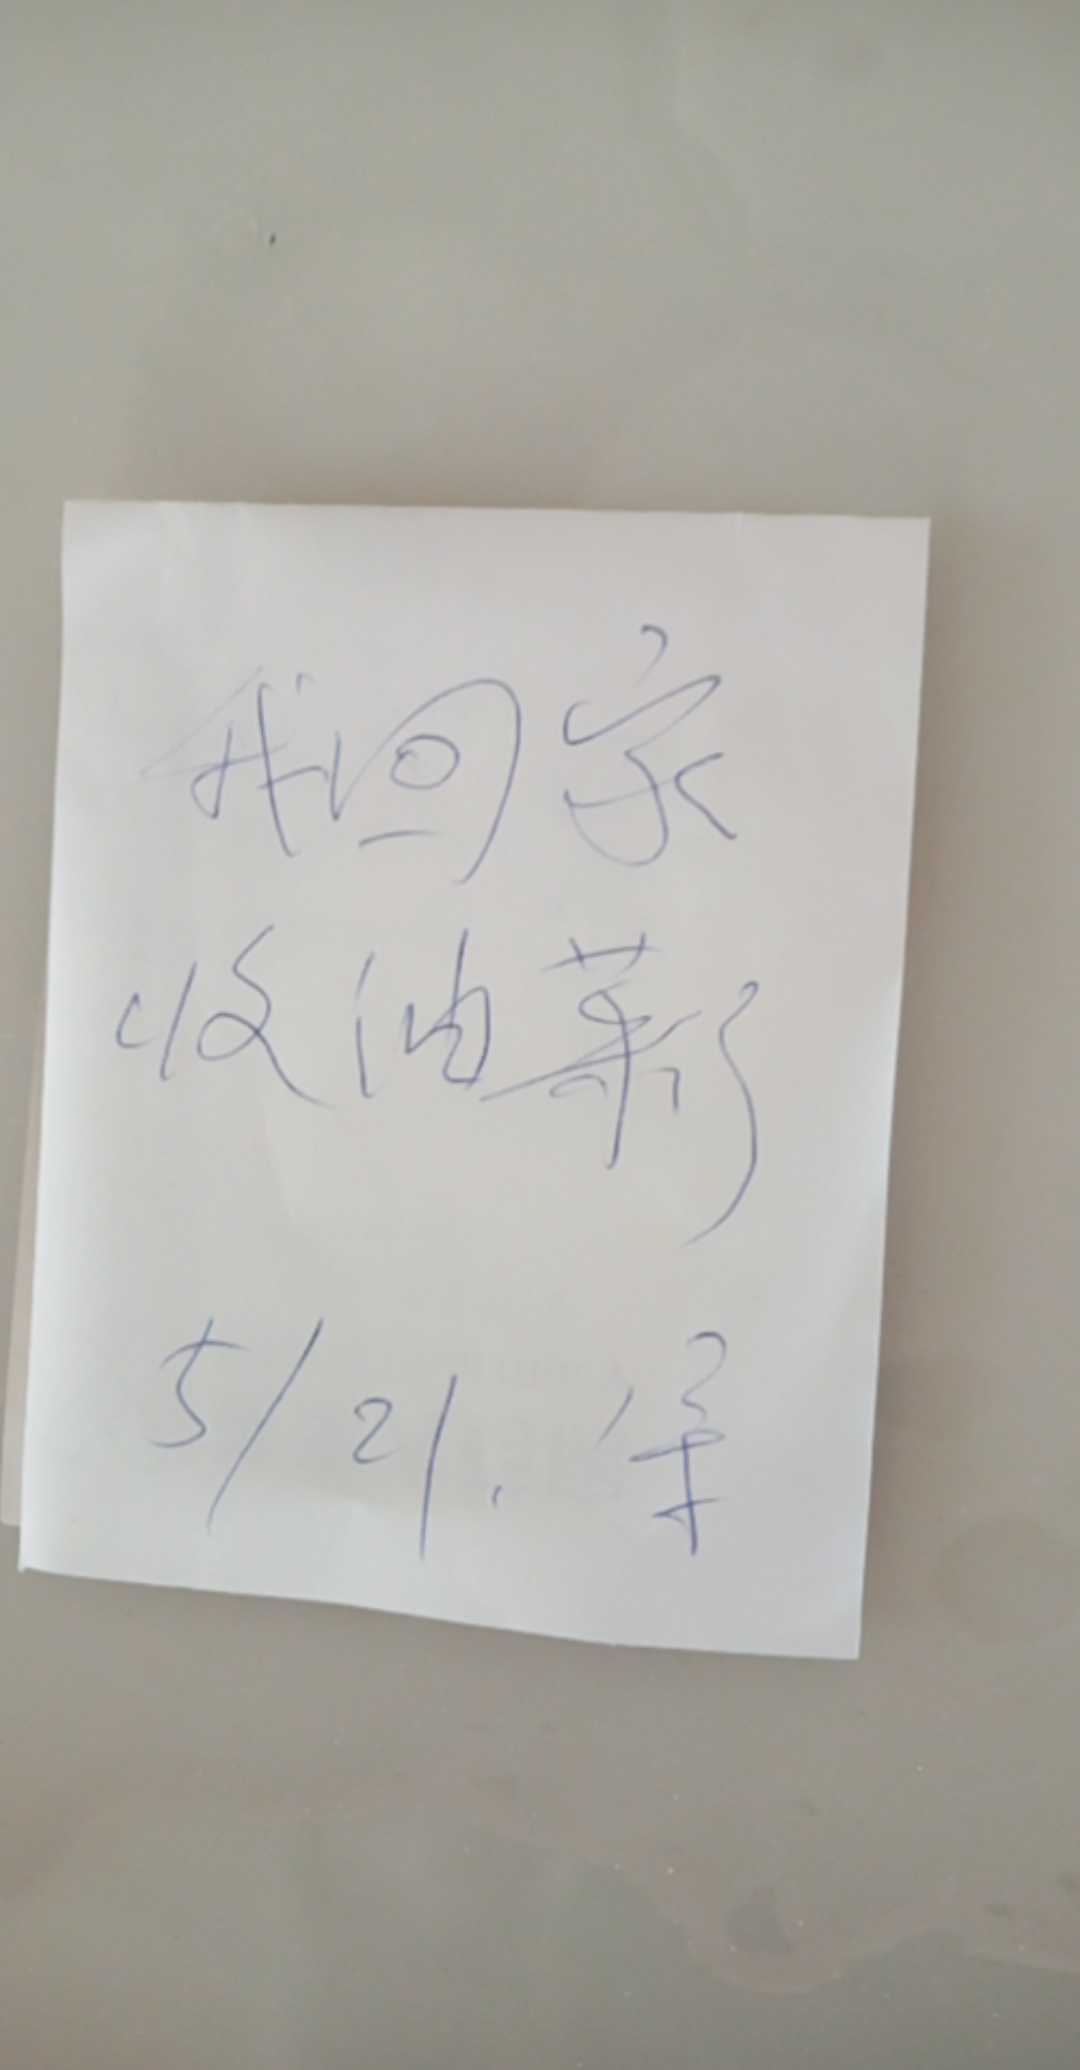 我回家
收油菜了
5/21.